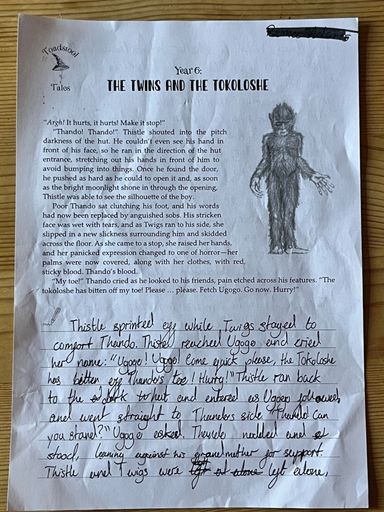 Toadstool
Tales
Year 6:
THE TWINS AND THE TOKOLOSHE
"Argh! It hurts, it hurts! Make it stop!"
"Thando! Thando!" Thistle shouted into the pitch
darkness of the hut. He couldn't even see his hand in
front of his face, so he ran in the direction of the hut
entrance, stretching out his hands in front of him to
avoid bumping into things. Once he found the door,
he pushed as hard as he could to open it and, as soon
as the bright moonlight shone in through the opening,
Thistle was able to see the silhouette of the boy.
Poor Thando sat clutching his foot, and his words
had now been replaced by anguished sobs. His stricken
face was wet with tears, and as Twigs ran to his side, she
slipped in a new slickness surrounding him and skidded
across the floor. As she came to a stop, she raised her hands,
and her panicked expression changed to one of horror—her
palms were now covered, along with her clothes, with red,
sticky blood. Thando's blood.
"My toe!" Thando cried as he looked to his friends, pain etched across his features. "The
tokoloshe has bitten off my toe! Please ... please. Fetch Ugogo. Go now. Hurry!"
Thistle sprinted off while Twigs stayed to
comfort Thando. Thistel reached Ugogo and cried
her name: "Ugogo! Ugogo! Come quick please, the Tokoloshe
has bitten off Thando's toe! Hurry!" Thistle ran back
to the hut and entered as Ugogo followed,
and went straight to side "Thando can
you stand?" Ugogo asked. Thando nodded and
stood, leaning against his grandmother for support.
Thistle and Twigs were left alone,